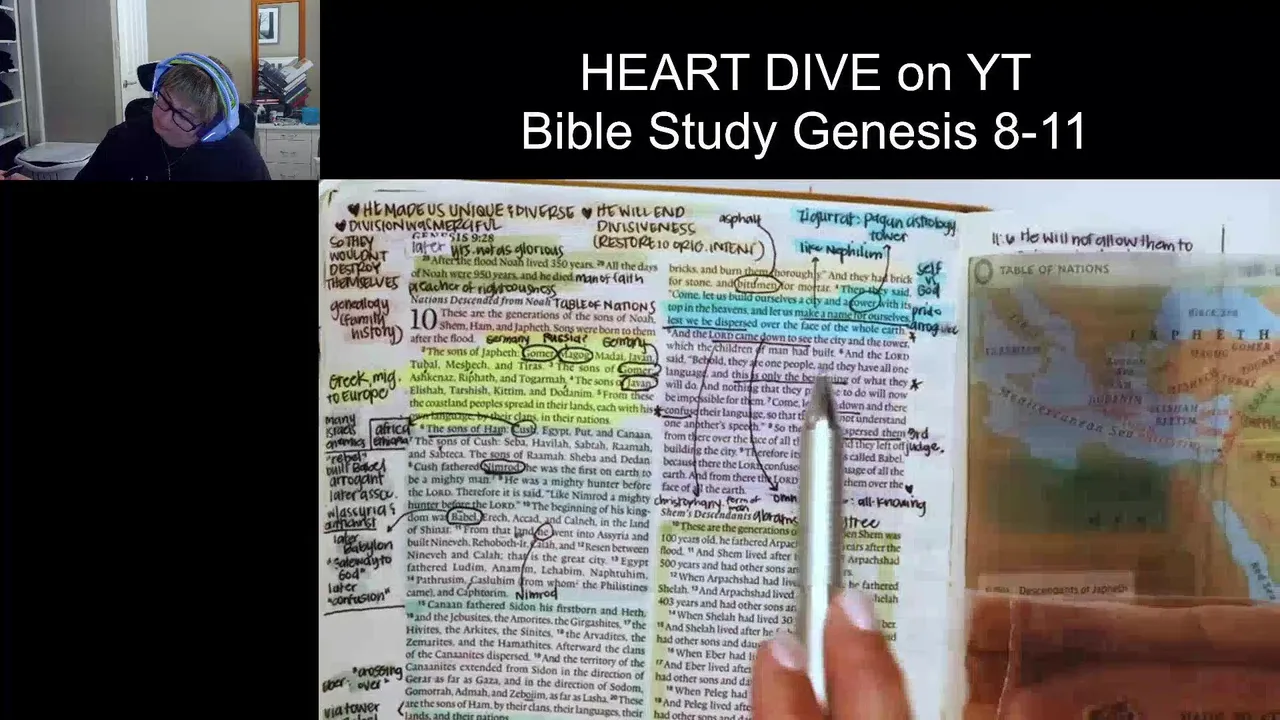 HEART DIVE on YT
Bible Study Genesis 8-11
♥ HE MADE US UNIQUE & DIVERSE ♥ HE WILL END
♥ DIVISION WAS MERCIFUL DIVISIVENESS
(RESTORE TO ORIG. INTENT)
SO THEY
WOULDN'T
DESTROY
THEMSELVES
genealogy
(family
history)
GENESIS 9:28
later yrs. not as glorious
28 After the flood Noah lived 350 years. 29 All the days
of Noah were 950 years, and he died man of faith
preacher of righteousness
Nations Descended from Noah TABLE OF NATIONS
10 These are the generations of the sons of Noah,
Shem, Ham, and Japheth. Sons were born to them
after the flood.
Germany Russia? Germany
2 The sons of Japheth: Gomer, Magog, Madai, Javan,
Tubal, Meshech, and Tiras. 3 The sons of Gomer:
Ashkenaz, Riphath, and Togarmah. 4 The sons of Javan:
Elishah, Tarshish, Kittim, and Dodanim. 5 From these
the coastland peoples spread in their lands, each with his
own language, by their clans, in their nations.
Greek, mig.
to Europe
6 The sons of Ham: Cush, Egypt, Put, and Canaan.
7 The sons of Cush: Seba, Havilah, Sabtah, Raamah,
and Sabteca. The sons of Raamah: Sheba and Dedan.
8 Cush fathered Nimrod; he was the first on earth to
be a mighty man. 9 He was a mighty hunter before
the LORD. Therefore it is said, "Like Nimrod a mighty
hunter before the LORD." 10 The beginning of his king-
dom was Babel, Erech, Accad, and Calneh, in the land
of Shinar. 11 From that land he went into Assyria and
built Nineveh, Rehoboth-Ir, Calah, and 12 Resen between
Nineveh and Calah; that is the great city. 13 Egypt
fathered Ludim, Anamim, Lehabim, Naphtuhim,
14 Pathrusim, Casluhim (from whom the Philistines
came), and Caphtorim.
Nimrod
many
"rebel"
built Babel
arrogant
w/assyria &
antichrist
later
Babylon
"gateway to
God"
later
"confusion"
15 Canaan fathered Sidon his firstborn and Heth,
16 and the Jebusites, the Amorites, the Girgashites, 17 the
Hivites, the Arkites, the Sinites, 18 the Arvadites, the
Zemarites, and the Hamathites. Afterward the clans
of the Canaanites dispersed. 19 And the territory of the
Canaanites extended from Sidon in the direction of
Gerar as far as Gaza, and in the direction of Sodom,
Gomorrah, Admah, and Zeboiim, as far as Lasha. 20 These
are the sons of Ham, by their clans, their languages, their
lands, and their nations.
"crossing
over"
via tower
asphalt
Zigurrat: pagan astrology
tower
like Nephilim
self
vs
God
bricks, and burn them thoroughly." And they had brick
for stone, and bitumen for mortar. 4 Then they said,
"Come, let us build ourselves a city and a tower with its
top in the heavens, and let us make a name for ourselves,
lest we be dispersed over the face of the whole earth."
5 And the LORD came down to see the city and the tower,
which the children of man had built. 6 And the LORD
said, "Behold, they are one people, and they have all one
language, and this is only the beginning of what they
will do. And nothing that they to do will now
be impossible for them. 7 Come, down and there
confuse their language, so that not understand
one another's speech." 8 So the spersed them
from there over the face of all they left off
building the city. 9 Therefore called Babel,
because there the LORD confuse language of all the
earth. And from there the LORD them over the
face of all the earth.
3rd
judge.
christophany form of man omn : all-knowing
Shem's Descendants abrams tree
10 These are the generations en Shem was
100 years old, he fathered Arpac years after the
flood. 11 And Shem lived after Arpachshad
500 years and had other sons
12 When Arpachshad had lived he fathered
Shelah. 13 And Arpachshad lived Shelah
403 years and had other sons
14 When Shelah had lived 30
15 And Shelah lived after he
had other sons and
16 When Eber had
17 And Eber lived after
had other sons and
18 When Peleg had
19 And Peleg lived
had other sons
11:6 He will not allow them to
TABLE OF NATIONS
Black Sea
JAPHETH
GOMER
MAGOG
TUBAL
ELISHAH
KITTIM
Mediterranean Sea
Descendants of Japheth